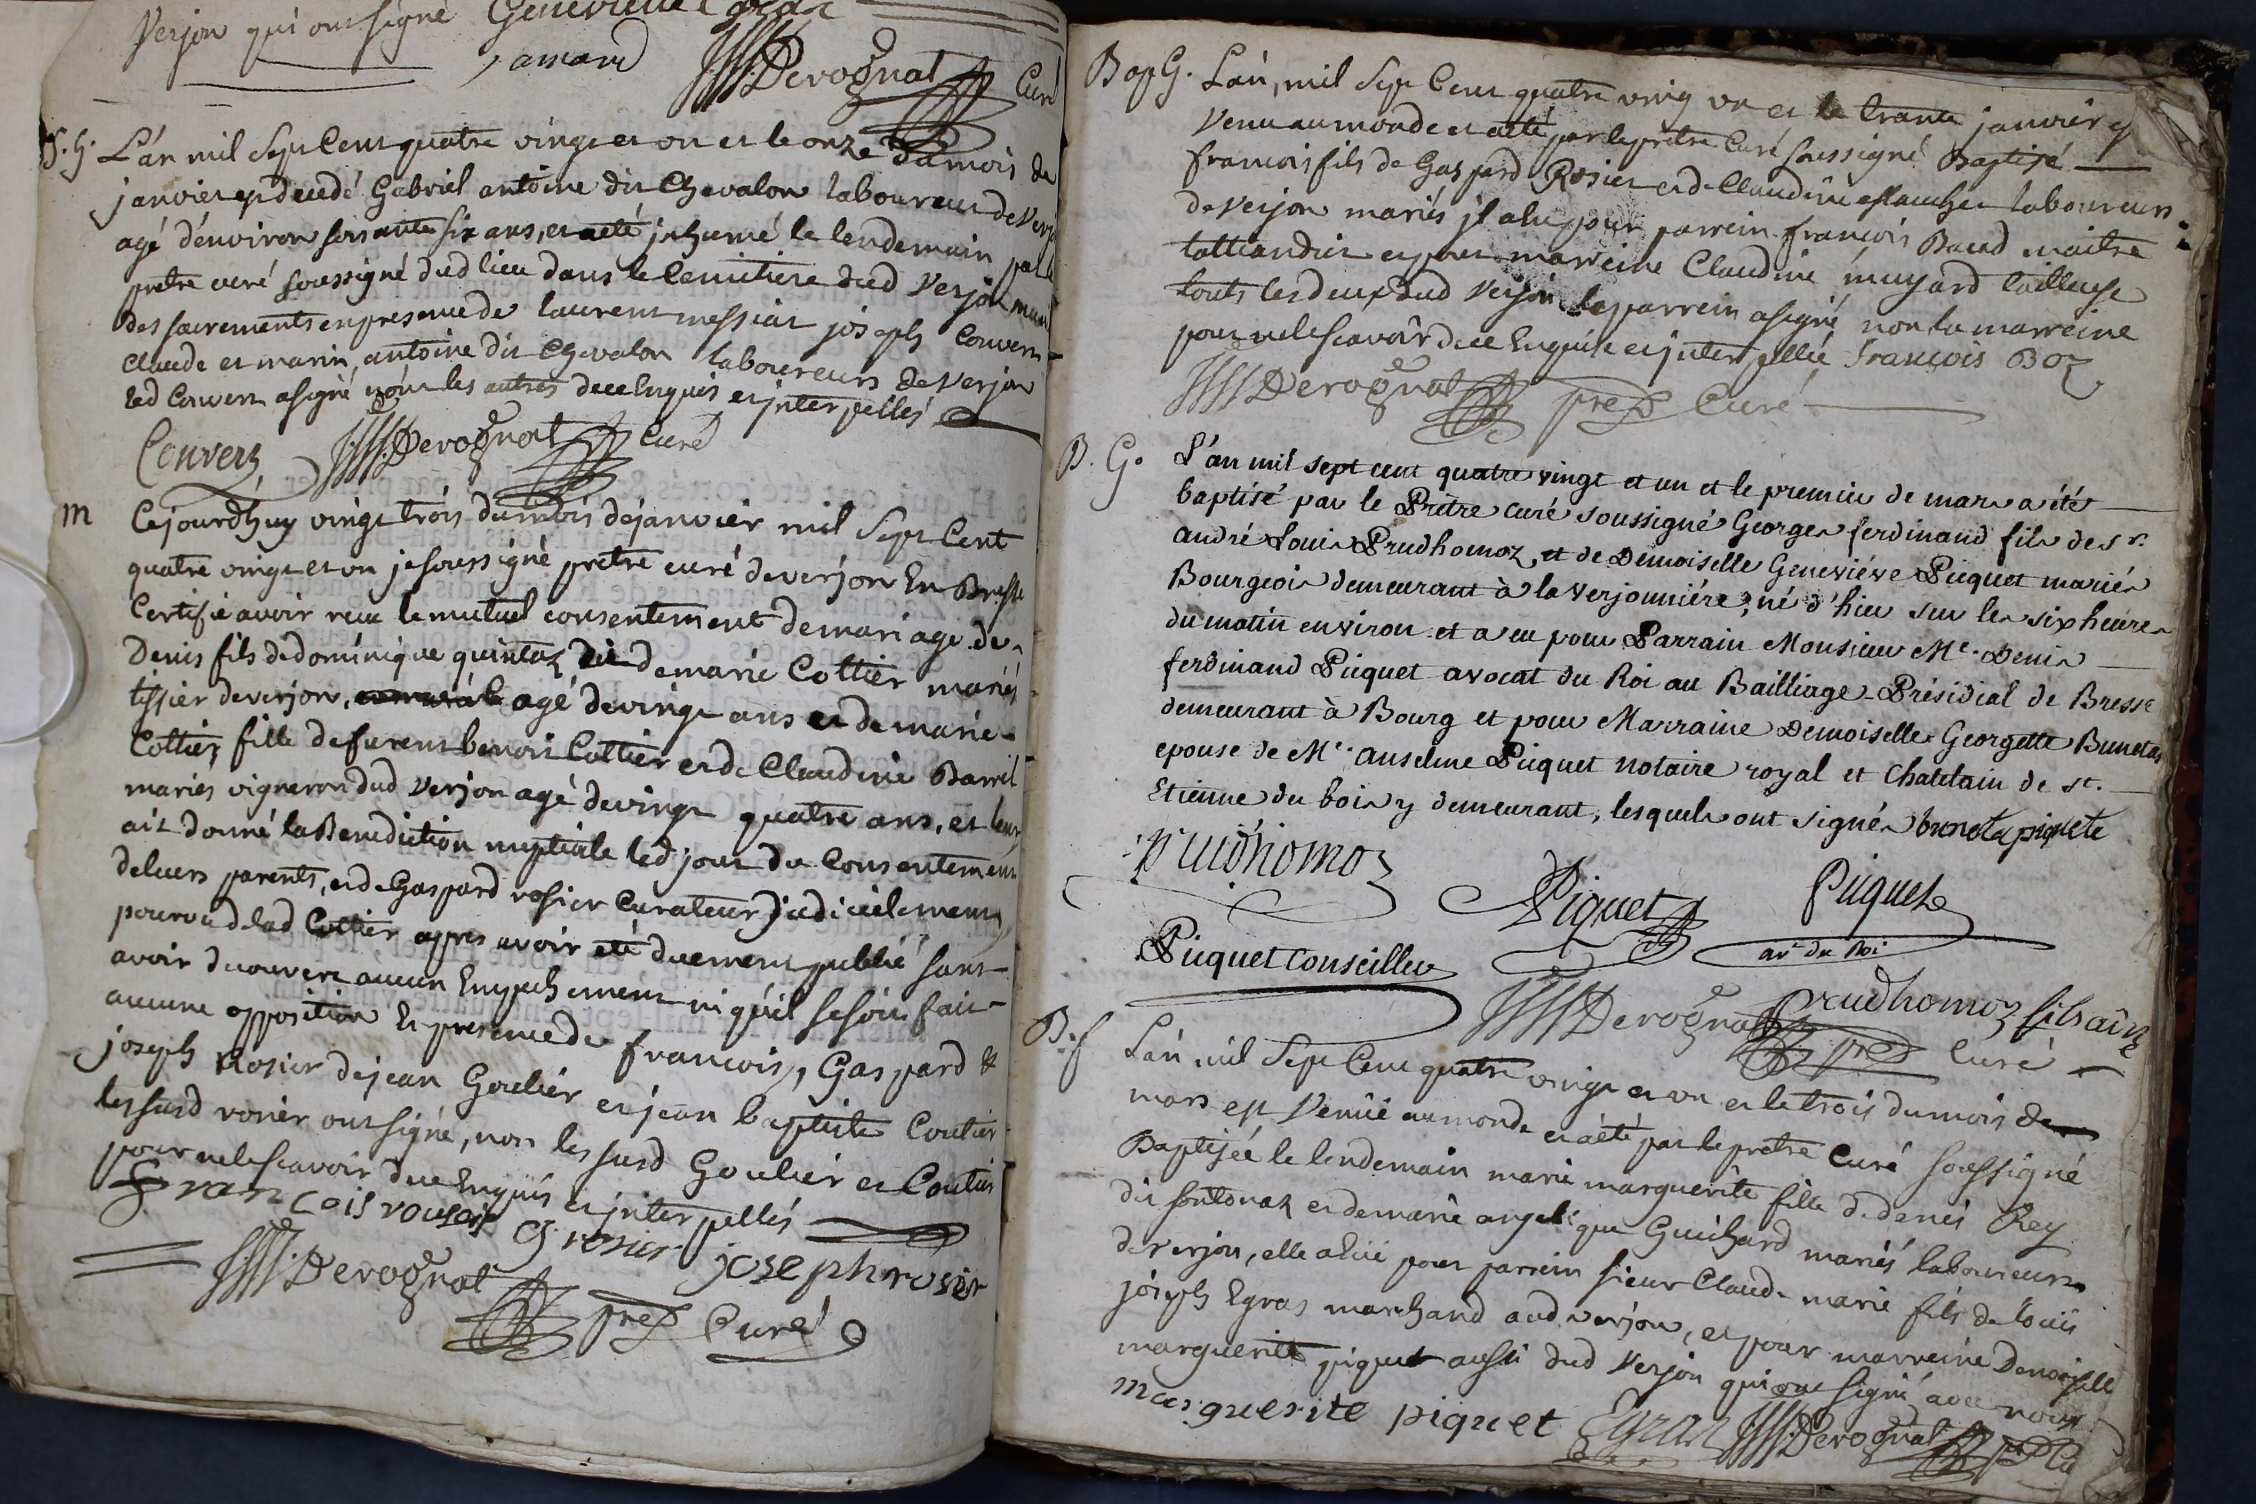 Verjon qui ont signé Genevieve Egraz
amand Derognat Curé
S. G. L'an mil Sept Cent quatre vingt et un et le onze du mois de
janvier est decedé Gabriel antoine dit Chevalon laboureur de Verjon
agé d'environ soixante six ans, et a eté jnhumé le lendemain par le
pretre curé soussigné dud lieu dans le Cemitiere dud Verjon muni
des sacrements en presence de laurent messiat joseph Convers
claude et marin antoine dit Chevalon laboureurs de Verjon
led Convers a signé non les autres de ce Enquis et jnterpellés
Convers Derognat Curé
M Cejourdhuy vingt trois du mois de janvier mil Sept Cent
quatre vingt et un je soussigné pretre curé de verjon En Bresse
Certifie avoir recu le mutuel consentement de mariage de
Denis fils de dominique quintaz et de marie Cottier mariés
tissier de verjon, agé de vingt ans et de marie
Cottier, fille de furent benoit Cottier et de Claudine Barril
mariés vigneron dud Verjon agé de vingt quatre ans, et leur
ait donné la Benediction nuptiale led jour du Consentement
de leurs parents, et de Gaspard rosier Curateur judicielement
pourvu de lad Cottier appres avoir eté duement publié sans
avoir decouvert aucun Empechement ni qu'il se soit fait
aucune opposition En presence de francois, Gaspard &
joseph Rosier de jean Goulier et jean baptiste Coutier
les susd rosier ont signé, non les susd Goulier et Coutier
pour ne le scavoir de ce Enquis et jnterpellés
Francois rousier G rosier joseph rosier
Derognat pretre Curé
Bap G. L'an, mil Sept Cent quatre ving un et le trante janvier est
Venu au monde et a eté par le pretre Curé soussigné Baptisé
francois fils de Gaspard Rosier et de Claudine laboureurs
de Verjon mariés jl a heu pour parrein francois Baud maitre
taillandier et pour marreine Claudine muyard tailleuse
touts les deux dud Verjon le parrein a signé non la marreine
pour ne le scavoir de ce Enquise et jnterpellée francois Boz
Derognat pretre Curé
B. G. L'an mil sept cent quatre vingt et un et le premier de mars a étés
baptisé par le Prêtre curé soussigné Georges ferdinand fils de Sr.
andré Louis Prudhomoz et de Demoiselle Geneviéve Picquet mariés
Bourgeois demeurant à la Verjonniére, né d'hier sur les six heures
du matin environ et a eu pour Parrain Monsieur Me. Denis
ferdinand Picquet avocat du Roi au Bailliage Présidial de Bresse
demeurant à Bourg et pour Marraine Demoiselle Georgette Brunetas
epouse de Me. anselme Picquet notaire royal et Chatelain de St.
Etienne du bois y demeurant, lesquels ont signés bruneta piqueta
Prudhomoz Piquet Picquet
av. du Roi
Picquet Conseiller Prudhomoz fils aîné
Derognat pretre Curé
B. f L'an mil Sept Cent quatre vingt et un et le trois du mois de
mars est Venüe au monde et a eté par le pretre Curé soussigné
Baptisée le lendemain marie marguerite fille de denis Rey
dit fontonaz et de marie angelique Guichard mariés laboureurs
de verjon, elle a heü pour parrein sieur Claude marie fils de louis
joseph Egraz marchand aud verjon, et pour marreine Demoiselle
marguerite piquet aussi dud Verjon qui ont signé avec nous
marguerite piquet Egraz Derognat